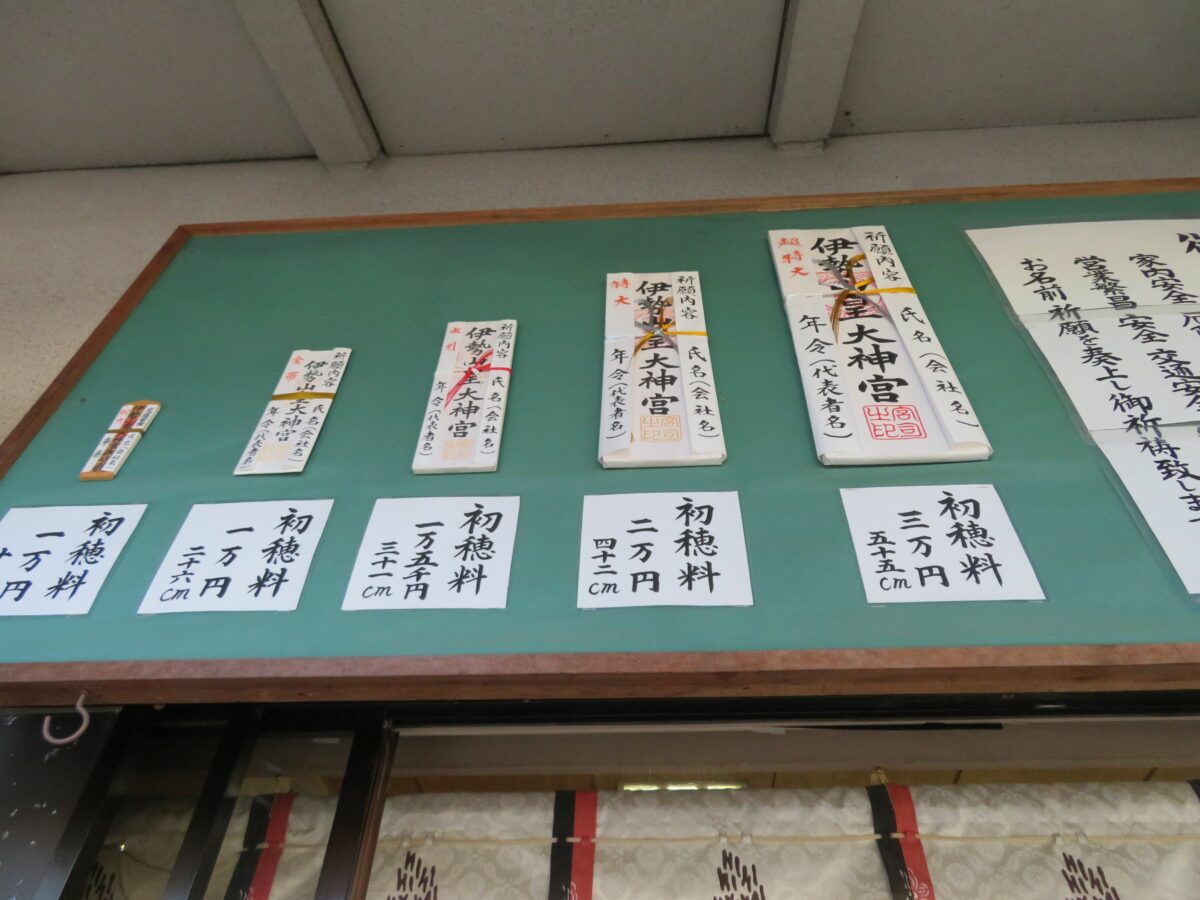 家内安全
営業繁昌 安全 交通安全
お名前 祈願を奏上し御祈祷致します
祈願内容
氏名(会社名)
伊勢山皇大神宮
宮司之印
超特大
年令(代表者名)
初穂料
三万円
五十五cm
祈願内容
氏名(会社名)
伊勢山皇大神宮
宮司之印
特大
年令(代表者名)
初穂料
二万円
四十二cm
祈願内容
氏名(会社名)
伊勢山皇大神宮
水引
年令(代表者名)
初穂料
一万五千円
三十一cm
祈願内容
氏名(会社名)
伊勢山皇大神宮
金帯
年令(代表者名)
初穂料
一万円
二十六cm
初穂料
一万円